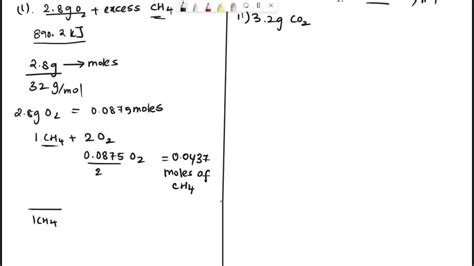 (1). 2.8g O₂ + excess CH₄
890.2 kJ
2.8g → moles
32 g/mol
2.8g O₂ = 0.0875 moles
1 CH₄ + 2O₂
0.0875 O₂ = 0.0437
2
moles of
CH₄
1CH₄
11) 3.2g CO₂